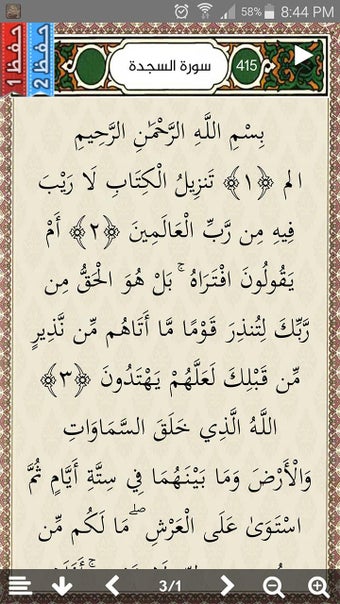 58% 8:44 PM
حفظ 1
حفظ 2
سورة السجدة
415
بِسْمِ اللَّهِ الرَّحْمَٰنِ الرَّحِيمِ
الم ﴿١﴾ تَنزِيلُ الْكِتَابِ لَا رَيْبَ
فِيهِ مِن رَّبِّ الْعَالَمِينَ ﴿٢﴾ أَمْ
يَقُولُونَ افْتَرَاهُ ۚ بَلْ هُوَ الْحَقُّ مِن
رَّبِّكَ لِتُنذِرَ قَوْمًا مَّا أَتَاهُم مِّن نَّذِيرٍ
مِّن قَبْلِكَ لَعَلَّهُمْ يَهْتَدُونَ ﴿٣﴾
اللَّهُ الَّذِي خَلَقَ السَّمَاوَاتِ
وَالْأَرْضَ وَمَا بَيْنَهُمَا فِي سِتَّةِ أَيَّامٍ ثُمَّ
اسْتَوَىٰ عَلَى الْعَرْشِ ۖ مَا لَكُم مِّن
3/1